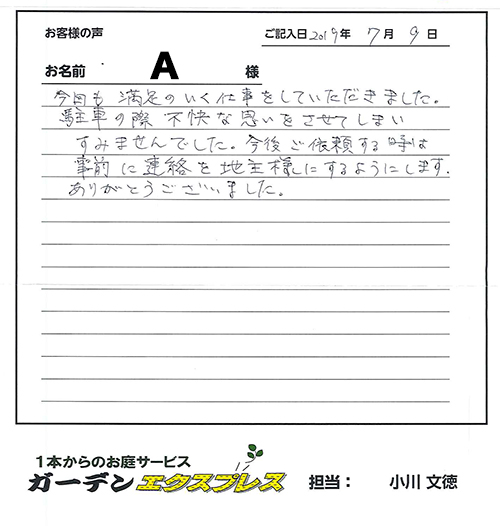 お客様の声
ご記入日2019年 7月 9日
お名前 A 様
今回も満足のいく仕事をしていただきました。
駐車の際不快な思いをさせてしまい
すみませんでした。今後ご依頼する時は
事前に連絡を地主様にするようにします.
ありがとうございました。
1本からのお庭サービス
ガーデンエクスプレス 担当： 小川 文徳